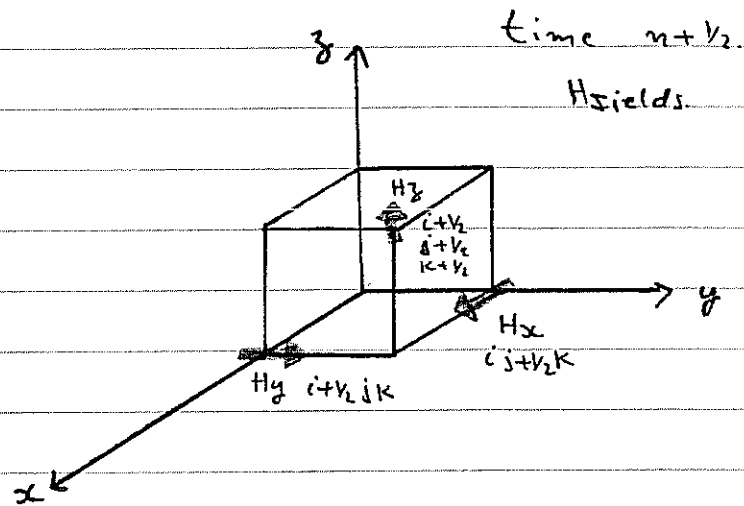 time n+1/2.
z
Hfields.
Hz
i+1/2
j+1/2
k+1/2
y
Hx
i j+1/2 k
Hy i+1/2 j k
x